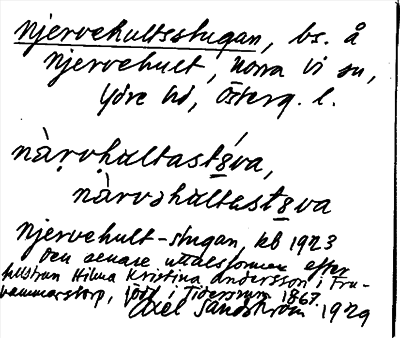 Njervehultsstugan, bs. å
Njervehult, Norra Vi sn,
Ydre hd, Österg. l.
nàrvhultastȣva,
nàrvəhultastȣva
Njervehult-stugan, kb 1923
Den senare uttalsformen efter
hustrun Hilma Kristina Andersson i Fru-
hammarstorp, född i Tidersrum 1867.
Axel Sandström 1929